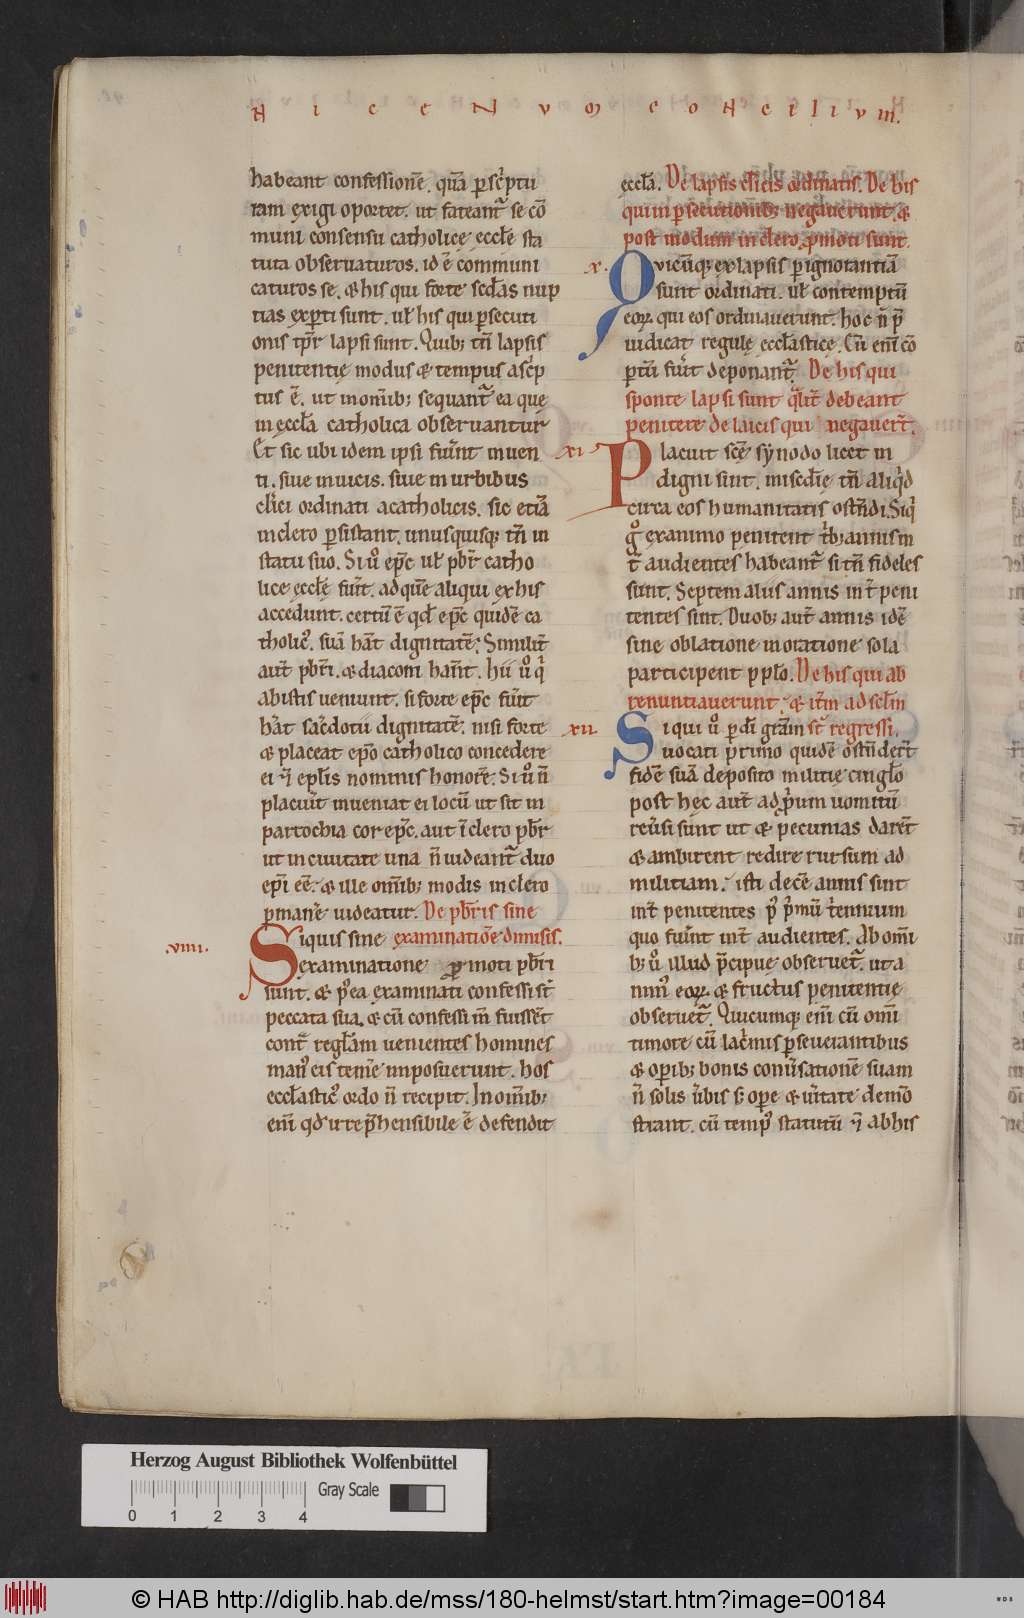 NICENVM CONCILIVM.
habeant confessionē. quā p scͥptu
ram exigi oportet. ut fateant᷑ se cō
muni consensu catholicę ecclę sta
tuta obseruaturos. id ē communi
caturos se. & his qui forte scdas nup
tias exꝑti sunt. uł his qui ꝑsecuti
onis tp̄r lapsi sunt. Quib; tn̄ lapsis
penitentię modus & tempus ascͥp
tus ē. ut in om̄ib; sequant᷑ ea quę
in eccła catholica obseruantur
Et sic ubi idem ipsi fuer̄nt inuen
ti. siue in uicis. siue in urbibus
clͥici ordinati a catholicis. sic etiā
in clero ꝑsistant. unusquisq; tn̄ in
statu suo. Si uͦ ep̄c uł pbr̄ catho
licę ecclę fuer̄t. ad quē aliqui ex his
accedunt. certū ē qd ep̄c quidē ca
tholic᷒. suā hāt dignitatē. Similit̄
aut̄ pbr̄i. & diaconi han̄t. hii uͦ qͥ
ab istis ueniunt. si forte ep̄c fuit̄
hāt sacͣdotii dignitatē. nisi forte
& placeat ep̄o catholico concedere
ei & ep̄lis nominis honorē. Si uͦ n̄
placuit inueniat ei locū ut sit in
parrochia corep̄c. aut ī clero pbr̄
ut in ciuitate una n̄ uideant᷑ duo
ep̄i eē. & ille om̄ib; modis in clero
ꝑmanere uideatur. De pbr̄is sine
viiii. Siquis sine examinatiōe dimisis.
examinatione ꝓmoti pbr̄i
sunt. & p᷒ ea examinati confessi st̄
peccata sua. & cū confessi n̄ fuissēt
contͣ regłam uenientes homines
man᷒ eis temere imposuerunt. hos
ecclastic᷒ ordo n̄ recipit. In om̄ib;
enī qd irrep̄hensibile ē defendit
eccła. De lapsis clͥicis ordinatis. De his
qui in ꝑsecutionib; negauerunt. &
post modum in clero ꝓmoti sunt.
x. Quicūq; ex lapsis ꝑ ignorantiā
sunt ordinati. uł contemptū
eoꝝ qui eos ordinauerunt. hoc n̄ p̄
iudicat regulę eccłasticę. Cū enī cō
ꝑtū fuit̄ deponant᷑. De his qui
sponte lapsi sunt qͣlit̄ debeant
penitere de laicis qui negauert̄.
xi. Placuit scē synodo licet in
digni sint. misedię tn̄ aliqͥd
circa eos humanitatis ostn̄di. Siqͥ
gͦ ex animo penitent tͥb; annis in
t̄ audientes habeant᷑ si tn̄ fideles
sunt. Septem aliis annis int̄ peni
tentes sint. Duob; aut̄ annis idē
sine oblatione in oratione sola
participent p pło. De his qui ab
renuntiauerunt. & itͤm ad sclm̄
xii. Si qui uͦ ꝑ dī grām st̄ regressi.
uocati primo quidē ostn̄dert̄
fidē suā deposito militię cingłō
post hęc aut̄ ad ꝓprium uomitū
reuͥsi sunt ut & pecunias darēt
& ambirent redire rursum ad
militiam. isti decē annis sint
int̄ penitentes p᷒ pͥmū tͥennium
quo fuer̄nt int̄ audientes. Ab om̄i
b; uͦ illud p̄cipue obseruet᷑. ut a
nim᷒ eoꝝ & fructus penitentię
obseruet᷑. Quicumq; enī cū om̄i
timore cū lacͥmis ꝑseuerantibus
& oꝑib; bonis conuͥsationē suam
n̄ solis uͥbis s; oꝑe & uͥitate demō
strant. cū temp᷒ statutū & ab his
Herzog August Bibliothek Wolfenbüttel
Gray Scale
0 1 2 3 4
© HAB http://diglib.hab.de/mss/180-helmst/start.htm?image=00184